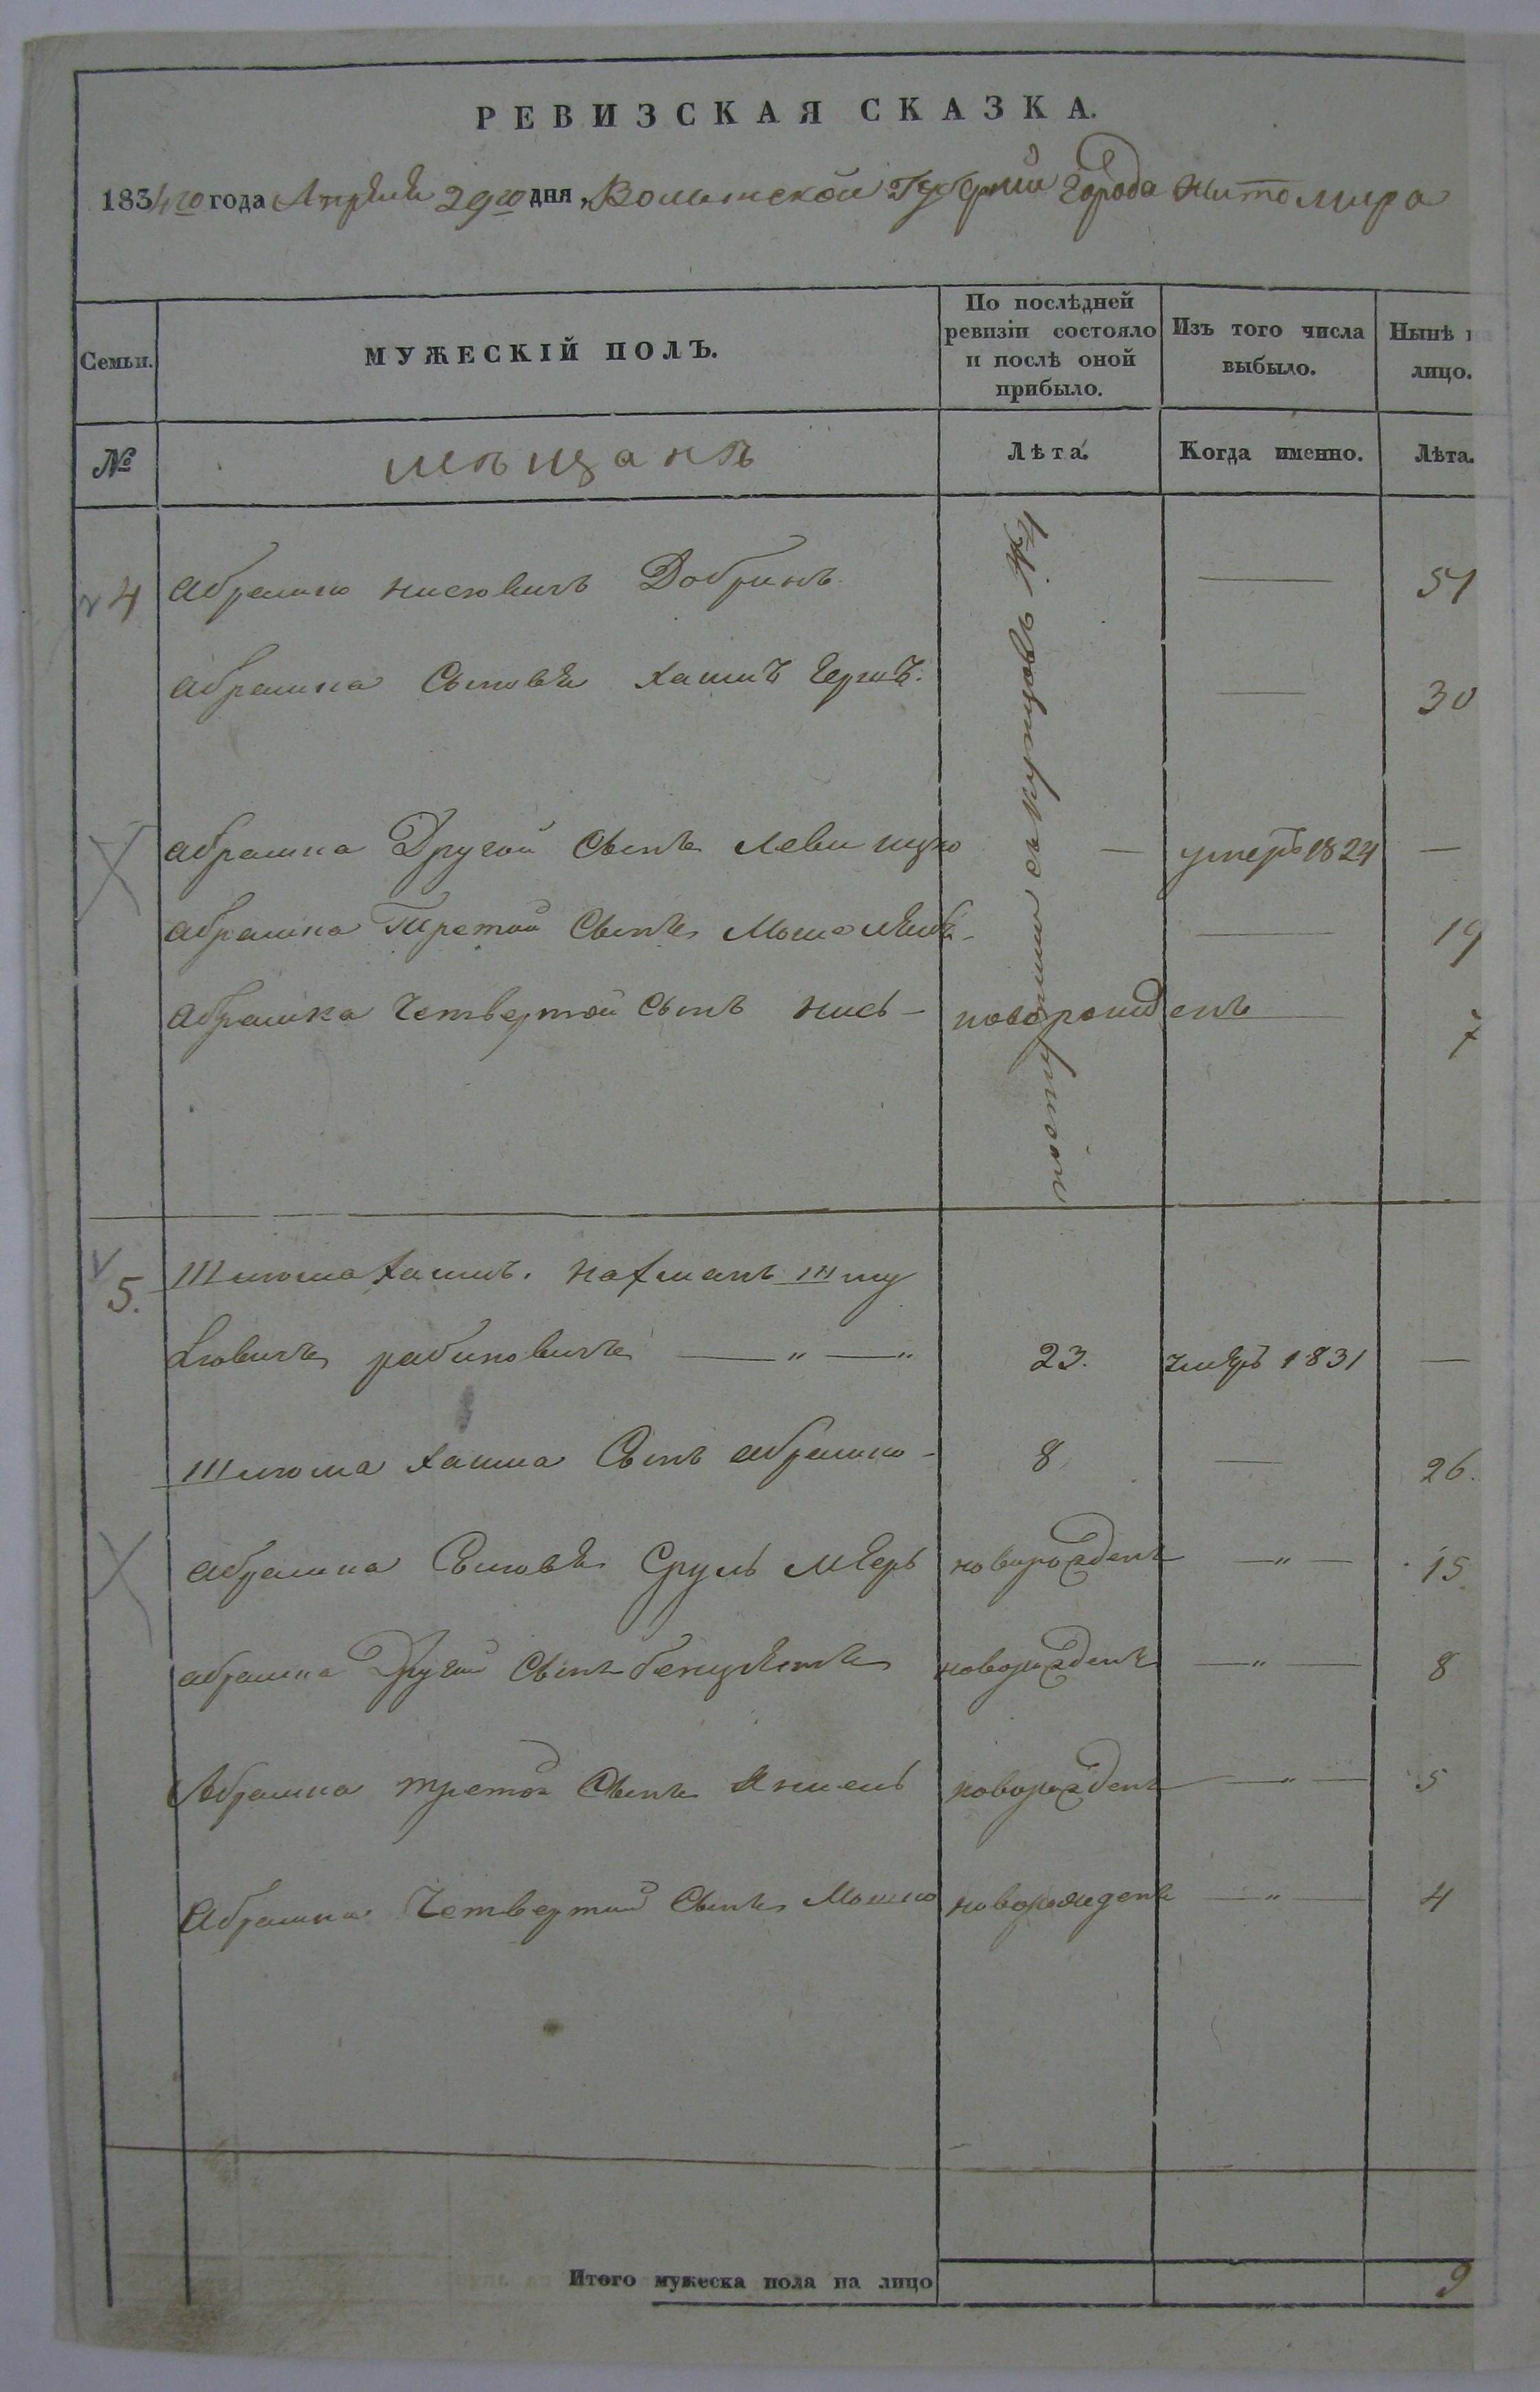 РЕВИЗСКАЯ СКАЗКА.
1834го года Апреля 29го дня, Волынской Губернии Города Житомира
Семьи.
МУЖЕСКІЙ ПОЛЪ.
По послѣдней ревизіи состояло и послѣ оной прибыло.
Изъ того числа выбыло.
Нынѣ на лицо.
№
мещанъ
Лѣта.
Когда именно.
Лѣта.
4 Абрамко Нисювичъ Добринъ — 51
Абрамка Сыновья Хаимъ — 30
Абрамка Другой Сынъ Левицко — умеръ 1824 —
Абрамка Третой Сынъ Мошо — 19
Абрамка Четвертой Сынъ Нись — новорожденъ — 7
поступили съ купцовъ №4
5. Шлиома Хаимъ. Нахманъ Шму
Лювичъ Рабиновичъ — " — " 23. умеръ 1831 —
Шлиома Хаима Сынъ Абрамко — 8 — 26.
Абрамка Сыновья Сруль Мееръ новорожденъ — " — 15.
Абрамка Другой Сынъ новорожденъ — " — 8
Абрамка третой Сынъ Янкель новорожденъ — " — 5
Абрамка Четвертой Сынъ Мошко новорожденъ — " — 4
Итого мужеска пола на лицо 9